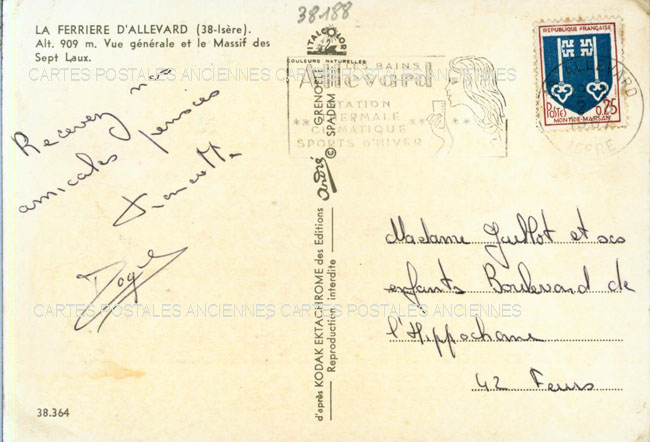 38188
LA FERRIERE D'ALLEVARD (38-Isère).
Alt. 909 m. Vue générale et le Massif des
Sept Laux.
CARTES POSTALES ANCIENNES CARTES POSTALES ANCIENNES
Recevez nos
amicales pensées
CARTES POSTALES ANCIENNES CARTES POSTALES ANCIENNES
38.364
COULEURS NATURELLES
d'après KODAK EKTACHROME des Editions André © GRENOBLE SPADEM
Reproduction interdite
LES BAINS
Allevard
STATION
THERMALE
CLIMATIQUE
SPORTS d'HIVER
REPUBLIQUE FRANÇAISE
POSTES 0,25
MONT-DE-MARSAN
ALLEVARD
ISERE
Madame Guillot et ses
enfants Boulevard de
l'Hippodrome
42 Feurs